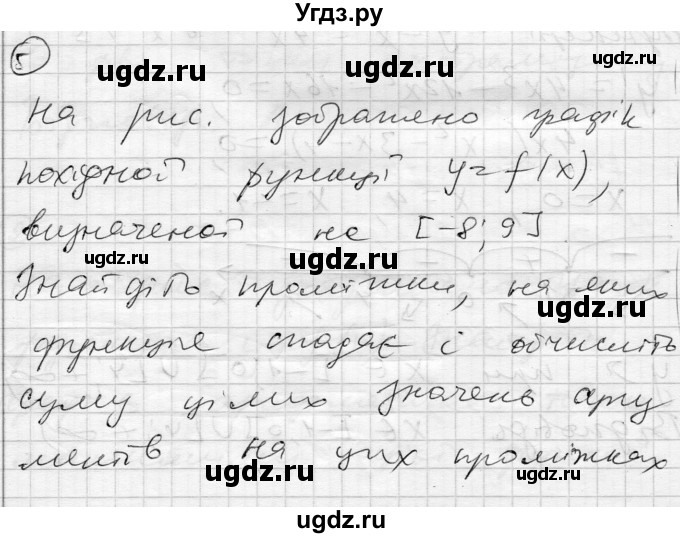 Угдз.ру
5
ugdz.ru ugdz.ru
На рис. зображено графік
ugdz.ru
похідної функції y=f(x),
визначеной на [-8; 9]
ugdz.ru ugdz.ru
Знайдіть проміжки, на яких
ugdz.ru
функція спадає і обчисліть
ugdz.ru
суму цілих значень аргу
ugdz.ru
ментів на цих проміжках
ugdz.ru ugdz.ru
ugdz.ru